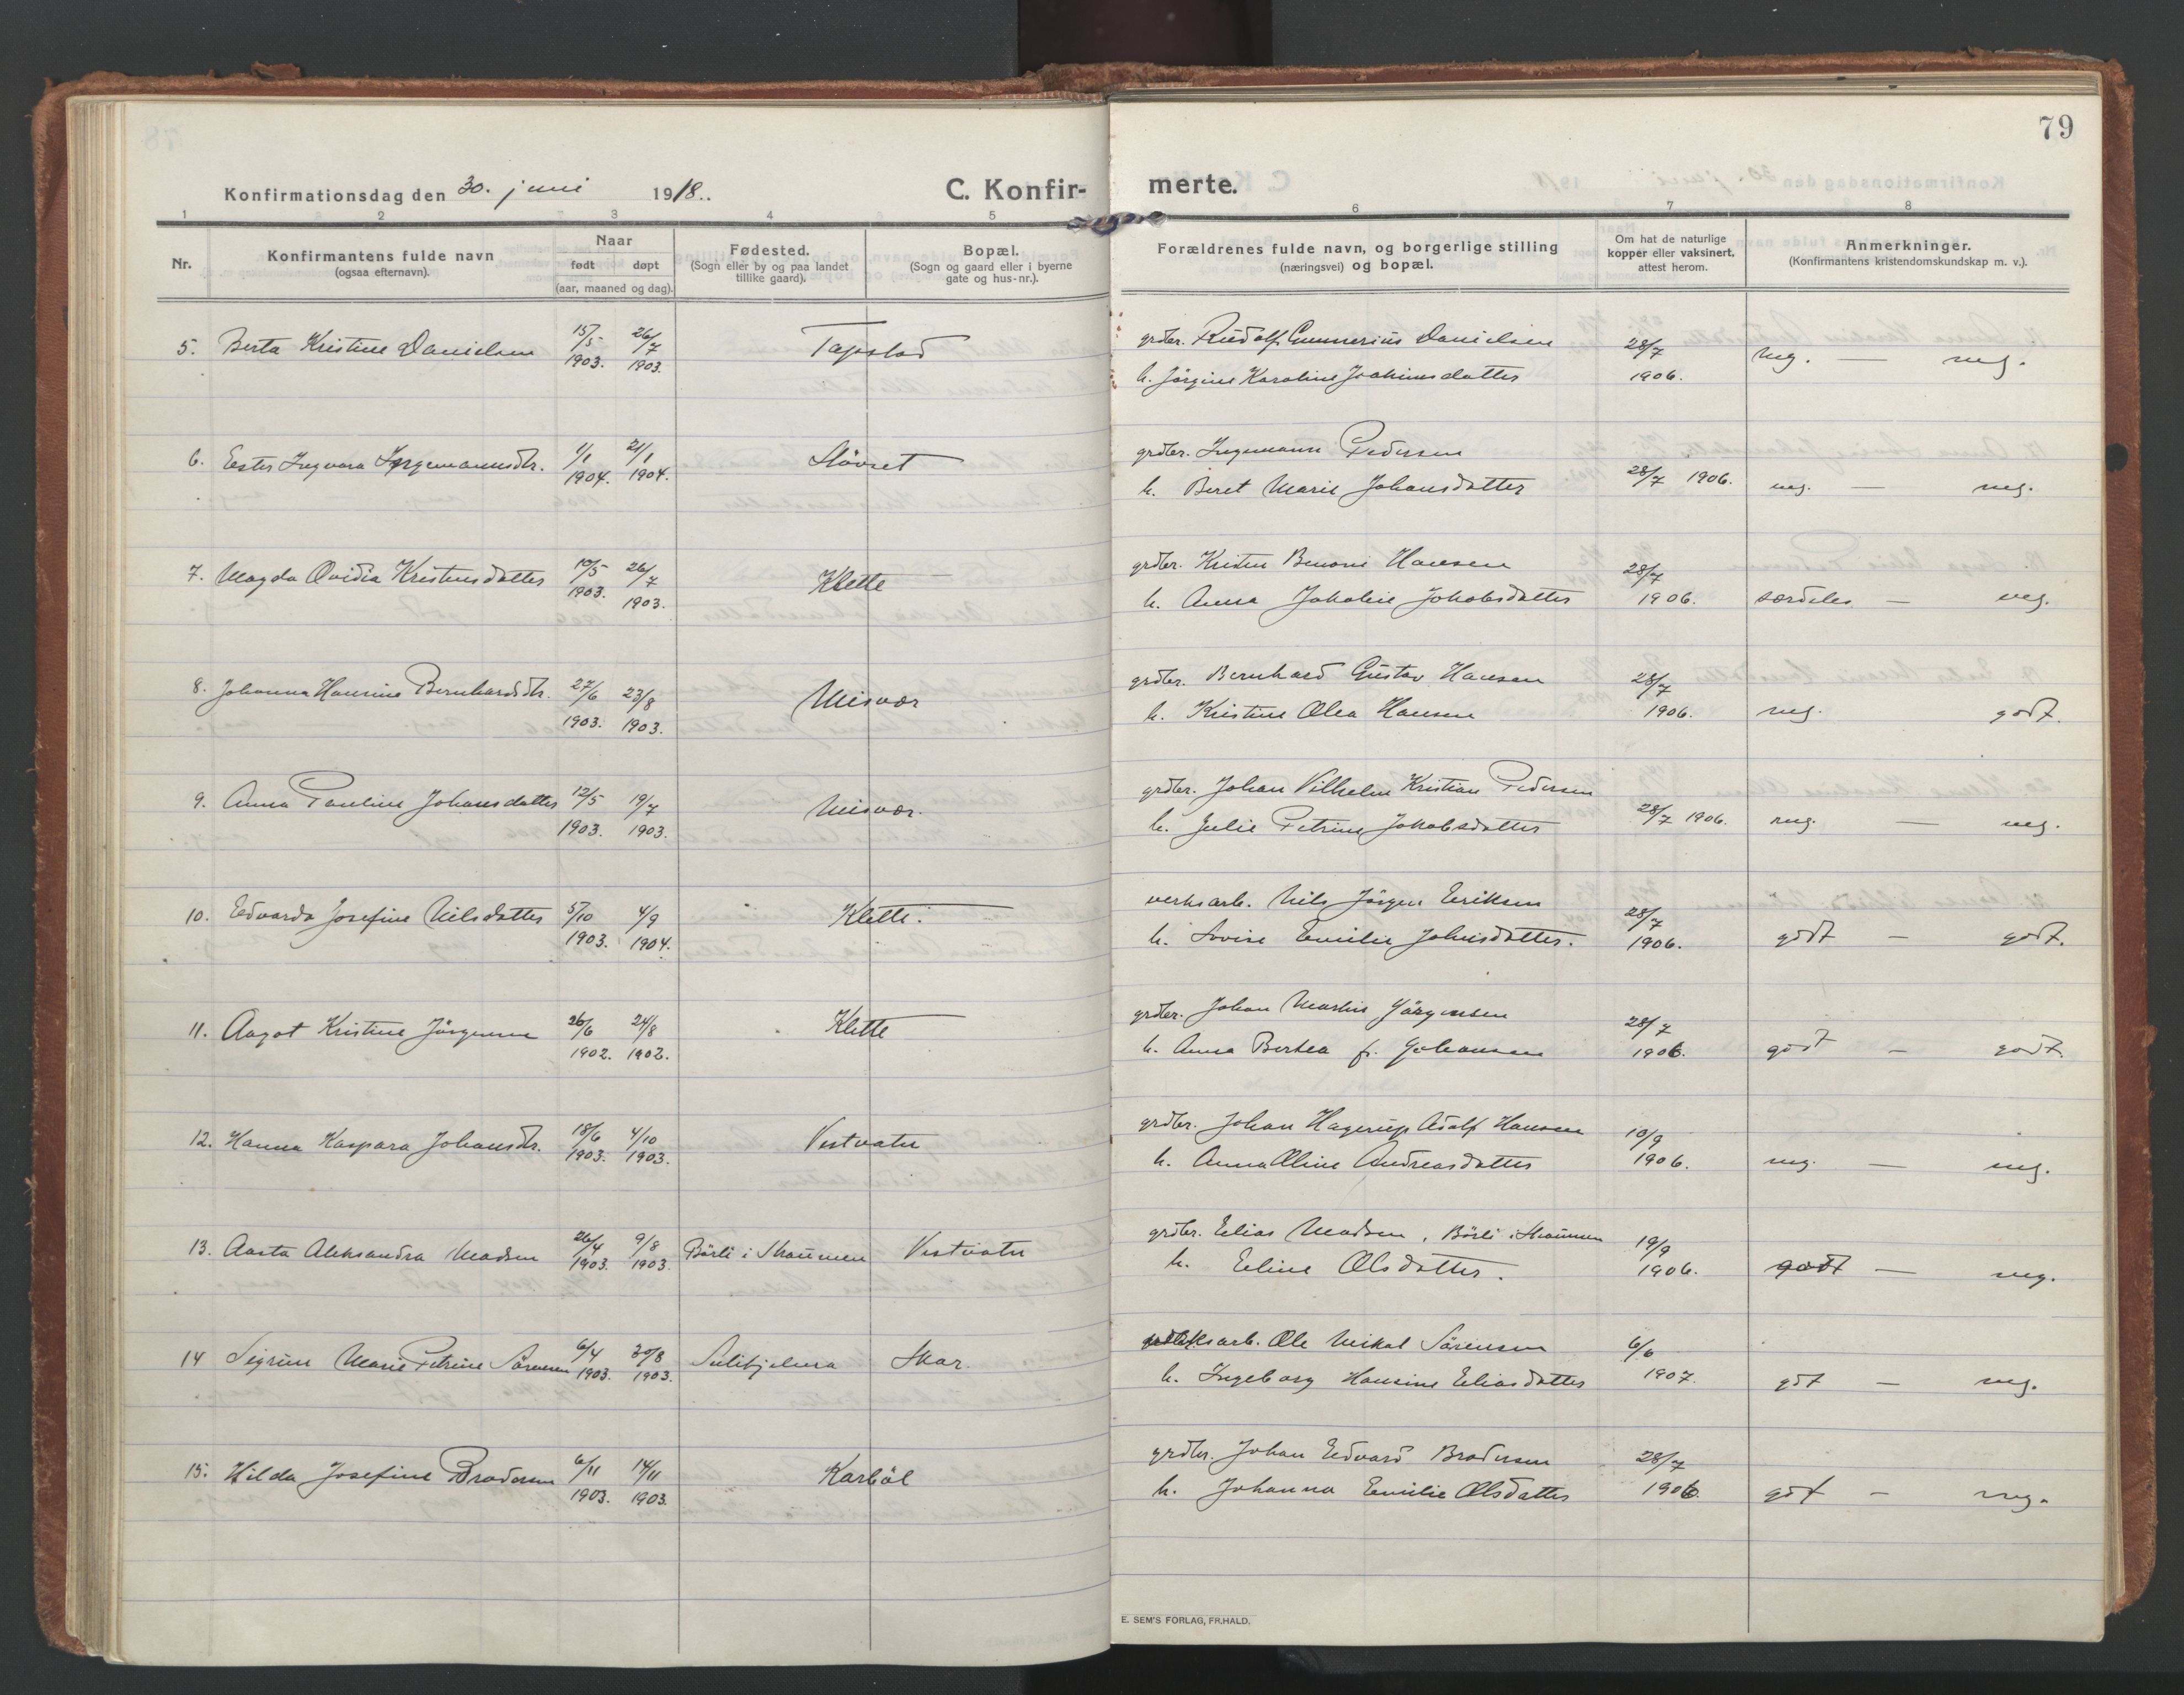 79
Konfirmationsdag den 30. juni 1918.
C. Konfirmerte.
1 2 3 4 5 6 7 8
Nr.
Konfirmantens fulde navn
(ogsaa efternavn).
Naar
født døpt
(aar, maaned og dag).
Fødested.
(Sogn eller by og paa landet
tillike gaard).
Bopæl.
(Sogn og gaard eller i byerne
gate og hus-nr.).
Forældrenes fulde navn, og borgerlige stilling
(næringsvei) og bopæl.
Om hat de naturlige
kopper eller vaksinert,
attest herom.
Anmerkninger.
(Konfirmantens kristendomskundskap m. v.).
5. Berta Kristine Danielsen 15/5 1903. 26/7 1903. Tapstad
grdbr. Rudolf Gunnerius Danielsen
h. Jörgine Karoline Joakimsdatter 28/7 1906. meg. — meg.
6. Ester Ingvara Ingemannsdtr. 1/1 1904. 21/1 1904. Stövset
grdbr. Ingemann Pedersen
h. Beret Marie Johansdatter 28/7 1906. meg. — meg.
7. Magda Ovidia Kristensdatter 10/5 1903. 26/7 1903. Klette
grdbr. Kristen Benoni Hansen
h. Anna Jakobie Jakobsdatter 28/7 1906. særdeles — meg.
8. Johanna Hansine Bernhardsdtr. 27/6 1903. 23/8 1903. Misvær
grdbr. Bernhard Gustav Hansen
h. Kristine Olea Hansen 28/7 1906. meg. godt.
9. Anna Pauline Johansdatter 12/5 1903. 19/7 1903. Misvær.
grdbr. Johan Vilhelm Kristian Pedersen
h. Julie Petrine Jakobsdatter 28/7 1906. meg. — meg.
10. Edvarda Josefine Nilsdatter 5/10 1903. 4/9 1904. Klette.
verksarb. Nils Jörgen Eriksen
h. Lovise Emilie Johnsdatter. 28/7 1906. godt — godt.
11. Aagot Kristine Jörgensen 26/6 1902. 24/8 1902. Klette
grdbr. Johan Martin Jörgensen
h. Anna Bertea f. Johansen 28/7 1906. godt — godt.
12. Hanna Kaspara Johansdtr. 18/6 1903. 4/10 1903. Vestvatn
grdbr. Johan Hagerup Adolf Hansen
h. Anna Oline Andreasdatter 10/9 1906. meg. — meg.
13. Aasta Aleksandra Madsen 26/4 1903. 9/8 1903. Börli i Skaunen Vestvatn
grdbr. Elias Madsen, Börli i Skaunen
h. Eline Olsdatter. 19/9 1906. godt — meg.
14 Sigrun Marie Petrine Sörensen 6/4 1903. 30/8 1903. Sulitjelma Skar.
verksarb. Ole Mikal Sörensen
h. Ingeborg Hansine Eliasdatter 6/6 1907. gdt — meg.
15. Hilda Josefine Brodersen 6/11 1903. 14/11 1903. Karböl
grdbr. Johan Edvard Brodersen
h. Johanna Emilie Olsdatter 28/7 1906. gdt — meg.
E. SEM'S FORLAG, FR.HALD.